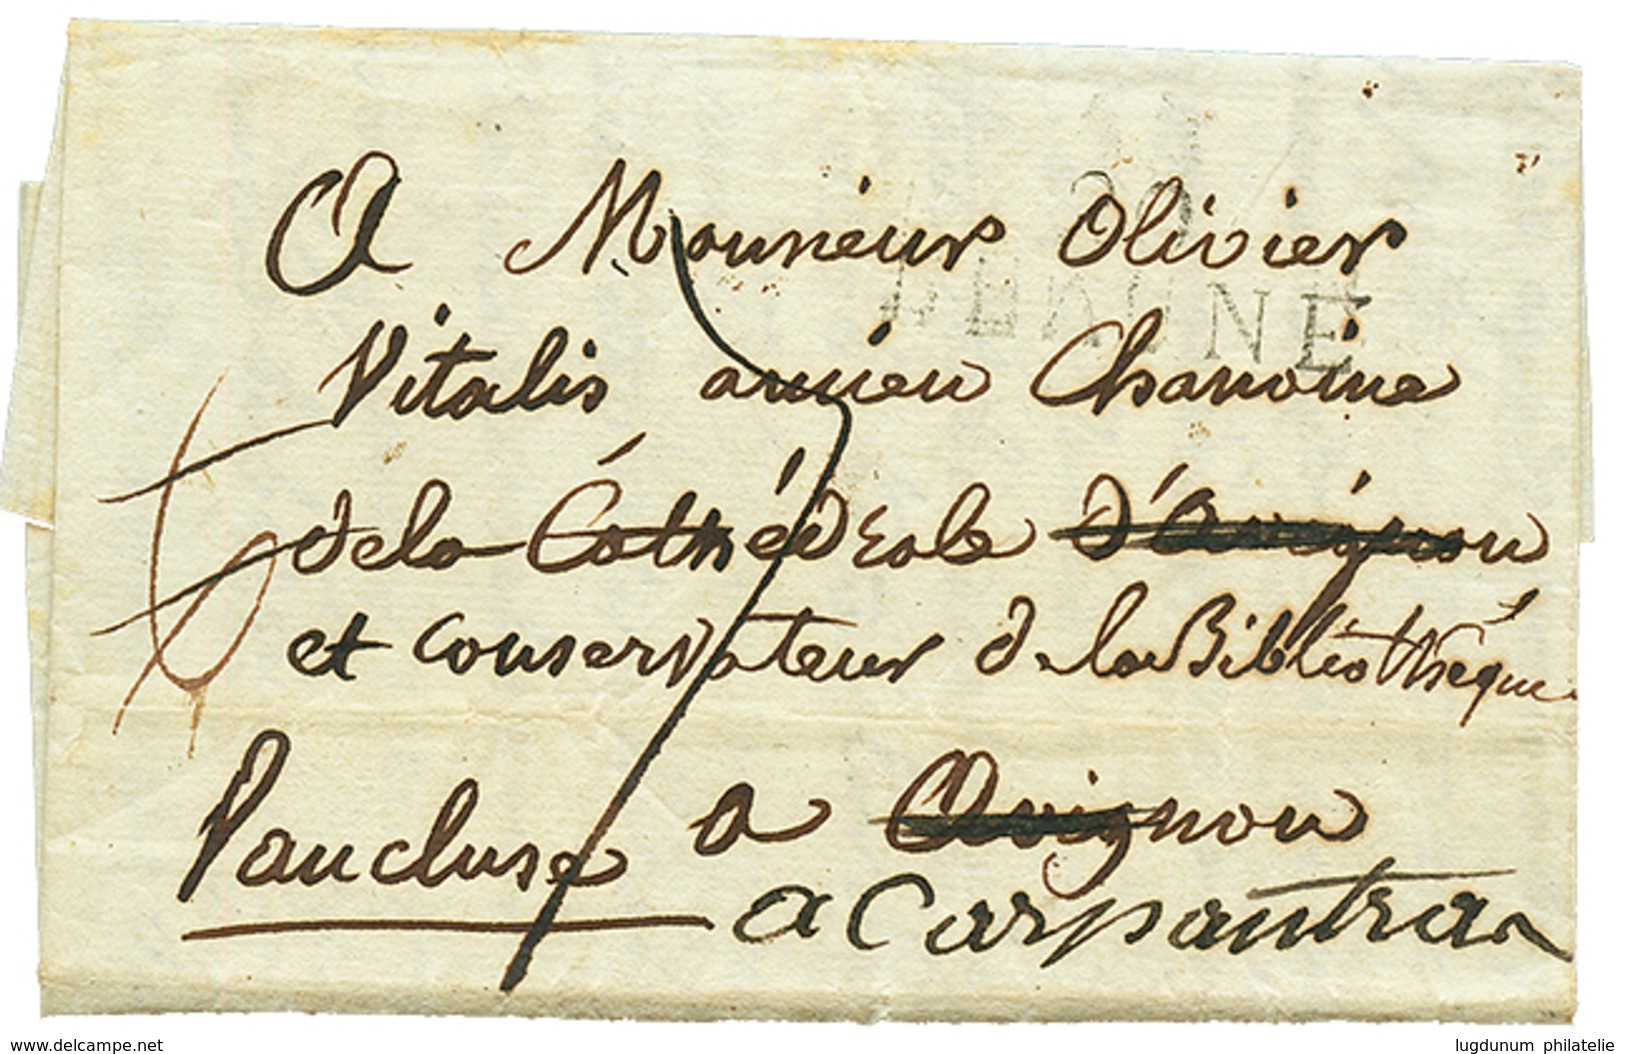 A Monsieur Olivier
20
BEAUNE
Vitalis ancien Chanoine
de la Cathédrale d'Avignon
et conservateur de la Bibliothèque
a Avignon
Vaucluse
a Carpantras
www.delcampe.net
lugdunum philatelie